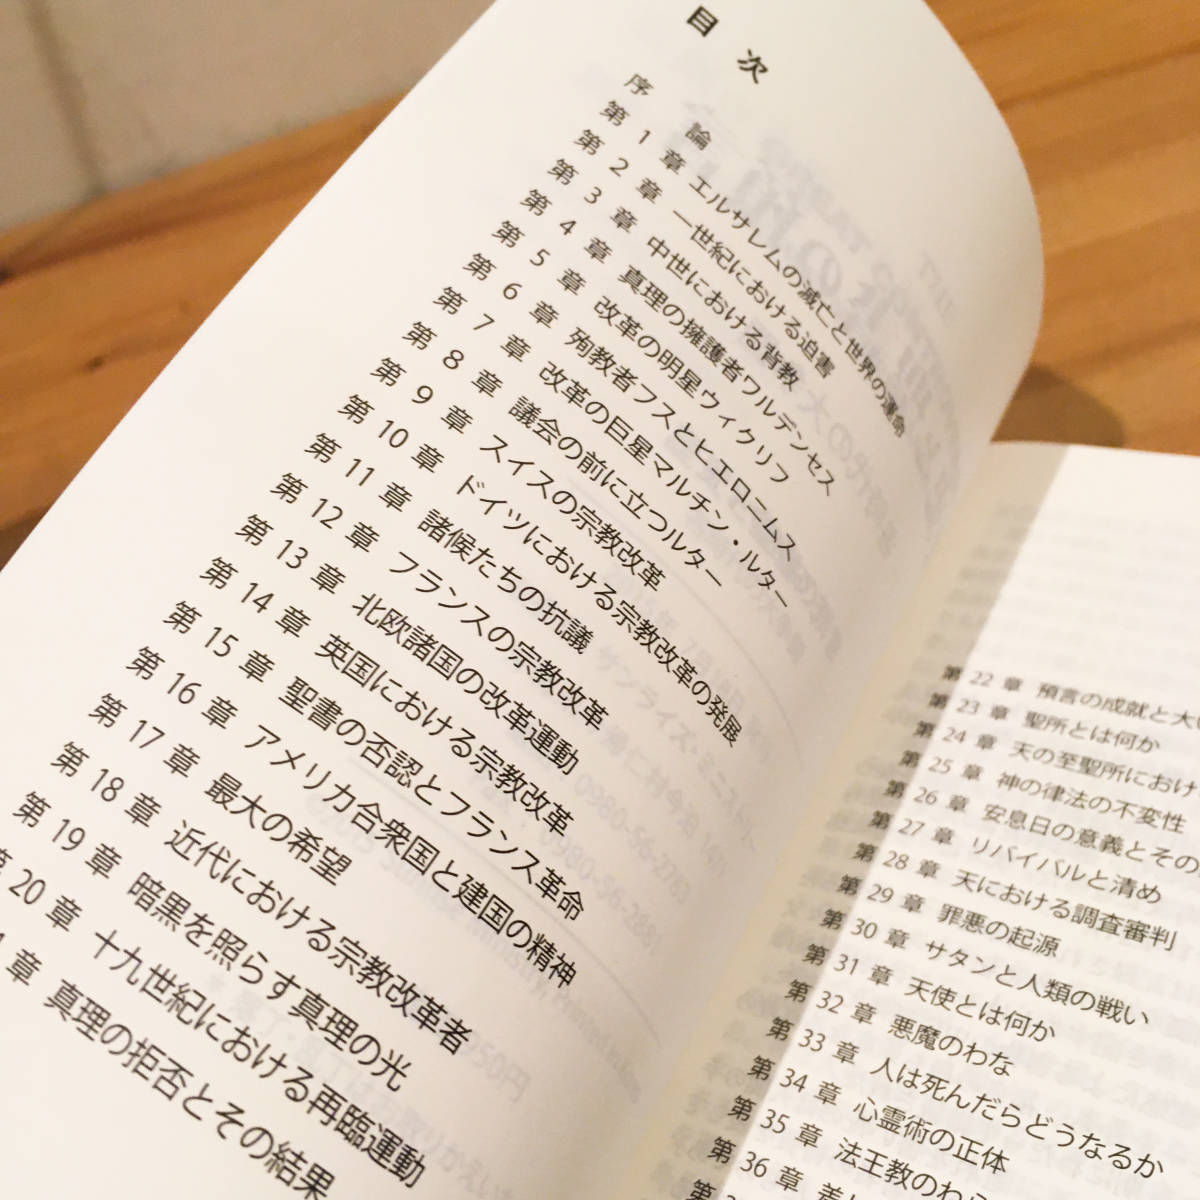 目次
序論
第1章 エルサレムの滅亡と世界の運命
第2章 一世紀における迫害
第3章 中世における背教
第4章 真理の擁護者ワルデンセス
第5章 改革の明星ウィクリフ
第6章 殉教者フスとヒエロニムス
第7章 改革の巨星マルチン・ルター
第8章 議会の前に立つルター
第9章 スイスの宗教改革
第10章 ドイツにおける宗教改革の発展
第11章 諸候たちの抗議
第12章 フランスの宗教改革
第13章 北欧諸国の改革運動
第14章 英国における宗教改革
第15章 聖書の否認とフランス革命
第16章 アメリカ合衆国と建国の精神
第17章 最大の希望
第18章 近代における宗教改革者
第19章 暗黒を照らす真理の光
第20章 十九世紀における再臨運動
1章 真理の拒否とその結果
第22章 預言の成就と大
第23章 聖所とは何か
第24章 天の至聖所におけ
第25章 神の律法の不変性
第26章 安息日の意義とその
第27章 リバイバルと清め
第28章 天における調査審判
第29章 罪悪の起源
第30章 サタンと人類の戦い
第31章 天使とは何か
第32章 悪魔のわな
第33章 人は死んだらどうなるか
第34章 心霊術の正体
第35章 法王教のわ
第36章 差し